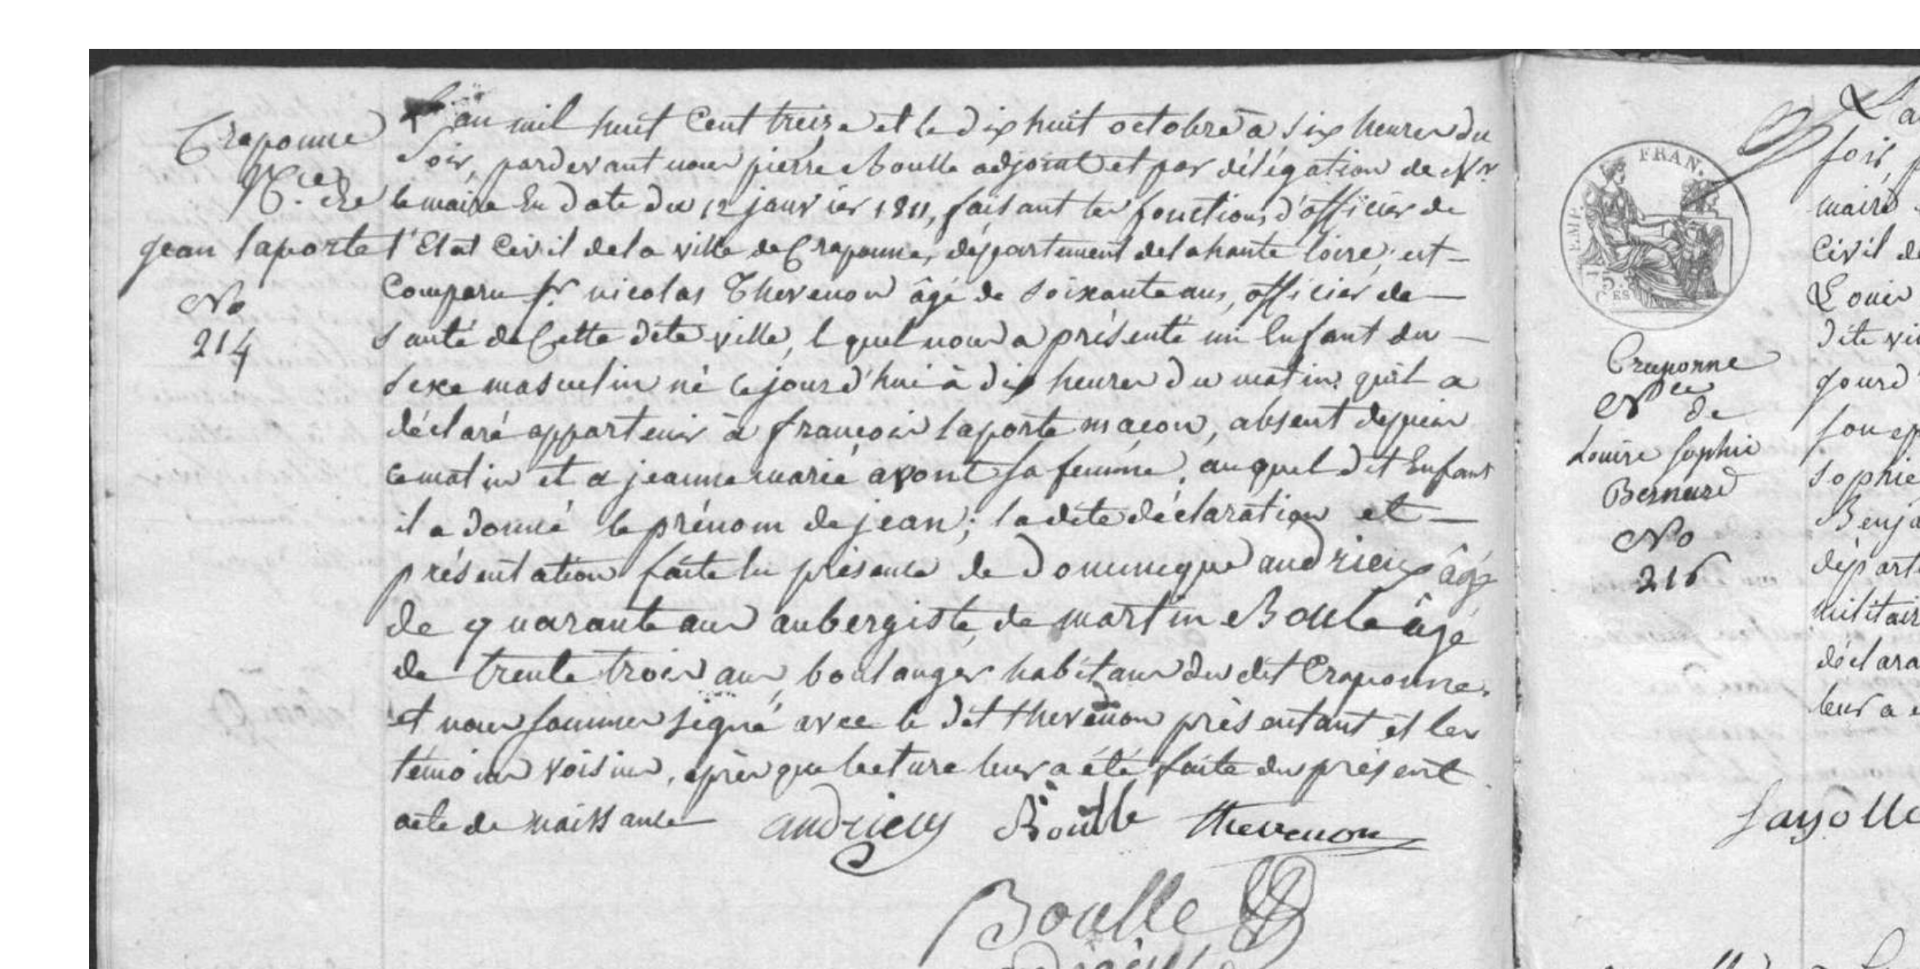 Craponne
N.ce de
jean laporte
No
214
L'an mil huit Cent treize et le dix huit octobre à six heures du
soir, pardevant nous pierre Boulle adjoint et par délégation de Mr
le maire En date du 12 janvier 1811, faisant les fonctions d'officier de
l'Etat Civil de la ville de Craponne, département de la haute loire; est
Comparu sr nicolas Thevenon âgé de soixante ans, officier de
santé de Cette dite ville, lequel nous a présenté un Enfant du
sexe masculin né cejourd'hui à dix heures du matin qu'il a
déclaré appartenir à françois laporte maçon, absent depuis
ce matin et a jeanne marie avont sa femme, auquel dit Enfant
il a donné le prénom de jean; la dite déclaration et
présentation faite En présence de Dominique andrieux âgé
de quarante ans aubergiste, de martin Boule âgé
de trente trois ans boulanger habitans du dit Craponne
et nous sommes signé avec le dit thevenon présentant et les
témoins voisins, après que lecture leur a été faite du présent
acte de naissance
andrieux Boulle thevenon
Boulle
EMP. FRAN.
Craponne
N.ce
de
Louise Sophie
Bernard
No
La
soir, p
maire
Civil de
Louis
dite vi
jourd'
son ep
sophie
Benja
départ
militair
déclara
leur a
fayolle